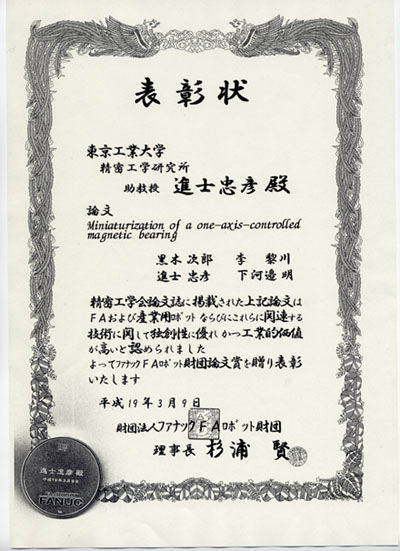 表彰状
東京工業大学
精密工学研究所
助教授 進士忠彦 殿
論文
Miniaturization of a one-axis-controlled
magnetic bearing
黒木 次郎 李 黎川
進士 忠彦 下河邉 明
精密工学会論文誌に掲載された上記論文は
FAおよび産業用ロボットならびにこれらに関連する
技術に関して独創性に優れかつ工業的価値
が高いと認められました
よってファナックFAロボット財団論文賞を贈り表彰
いたします
平成19年3月9日
財団法人ファナックFAロボット財団
理事長 杉浦 賢
進士忠彦 殿
平成19年3月9日
FANUC